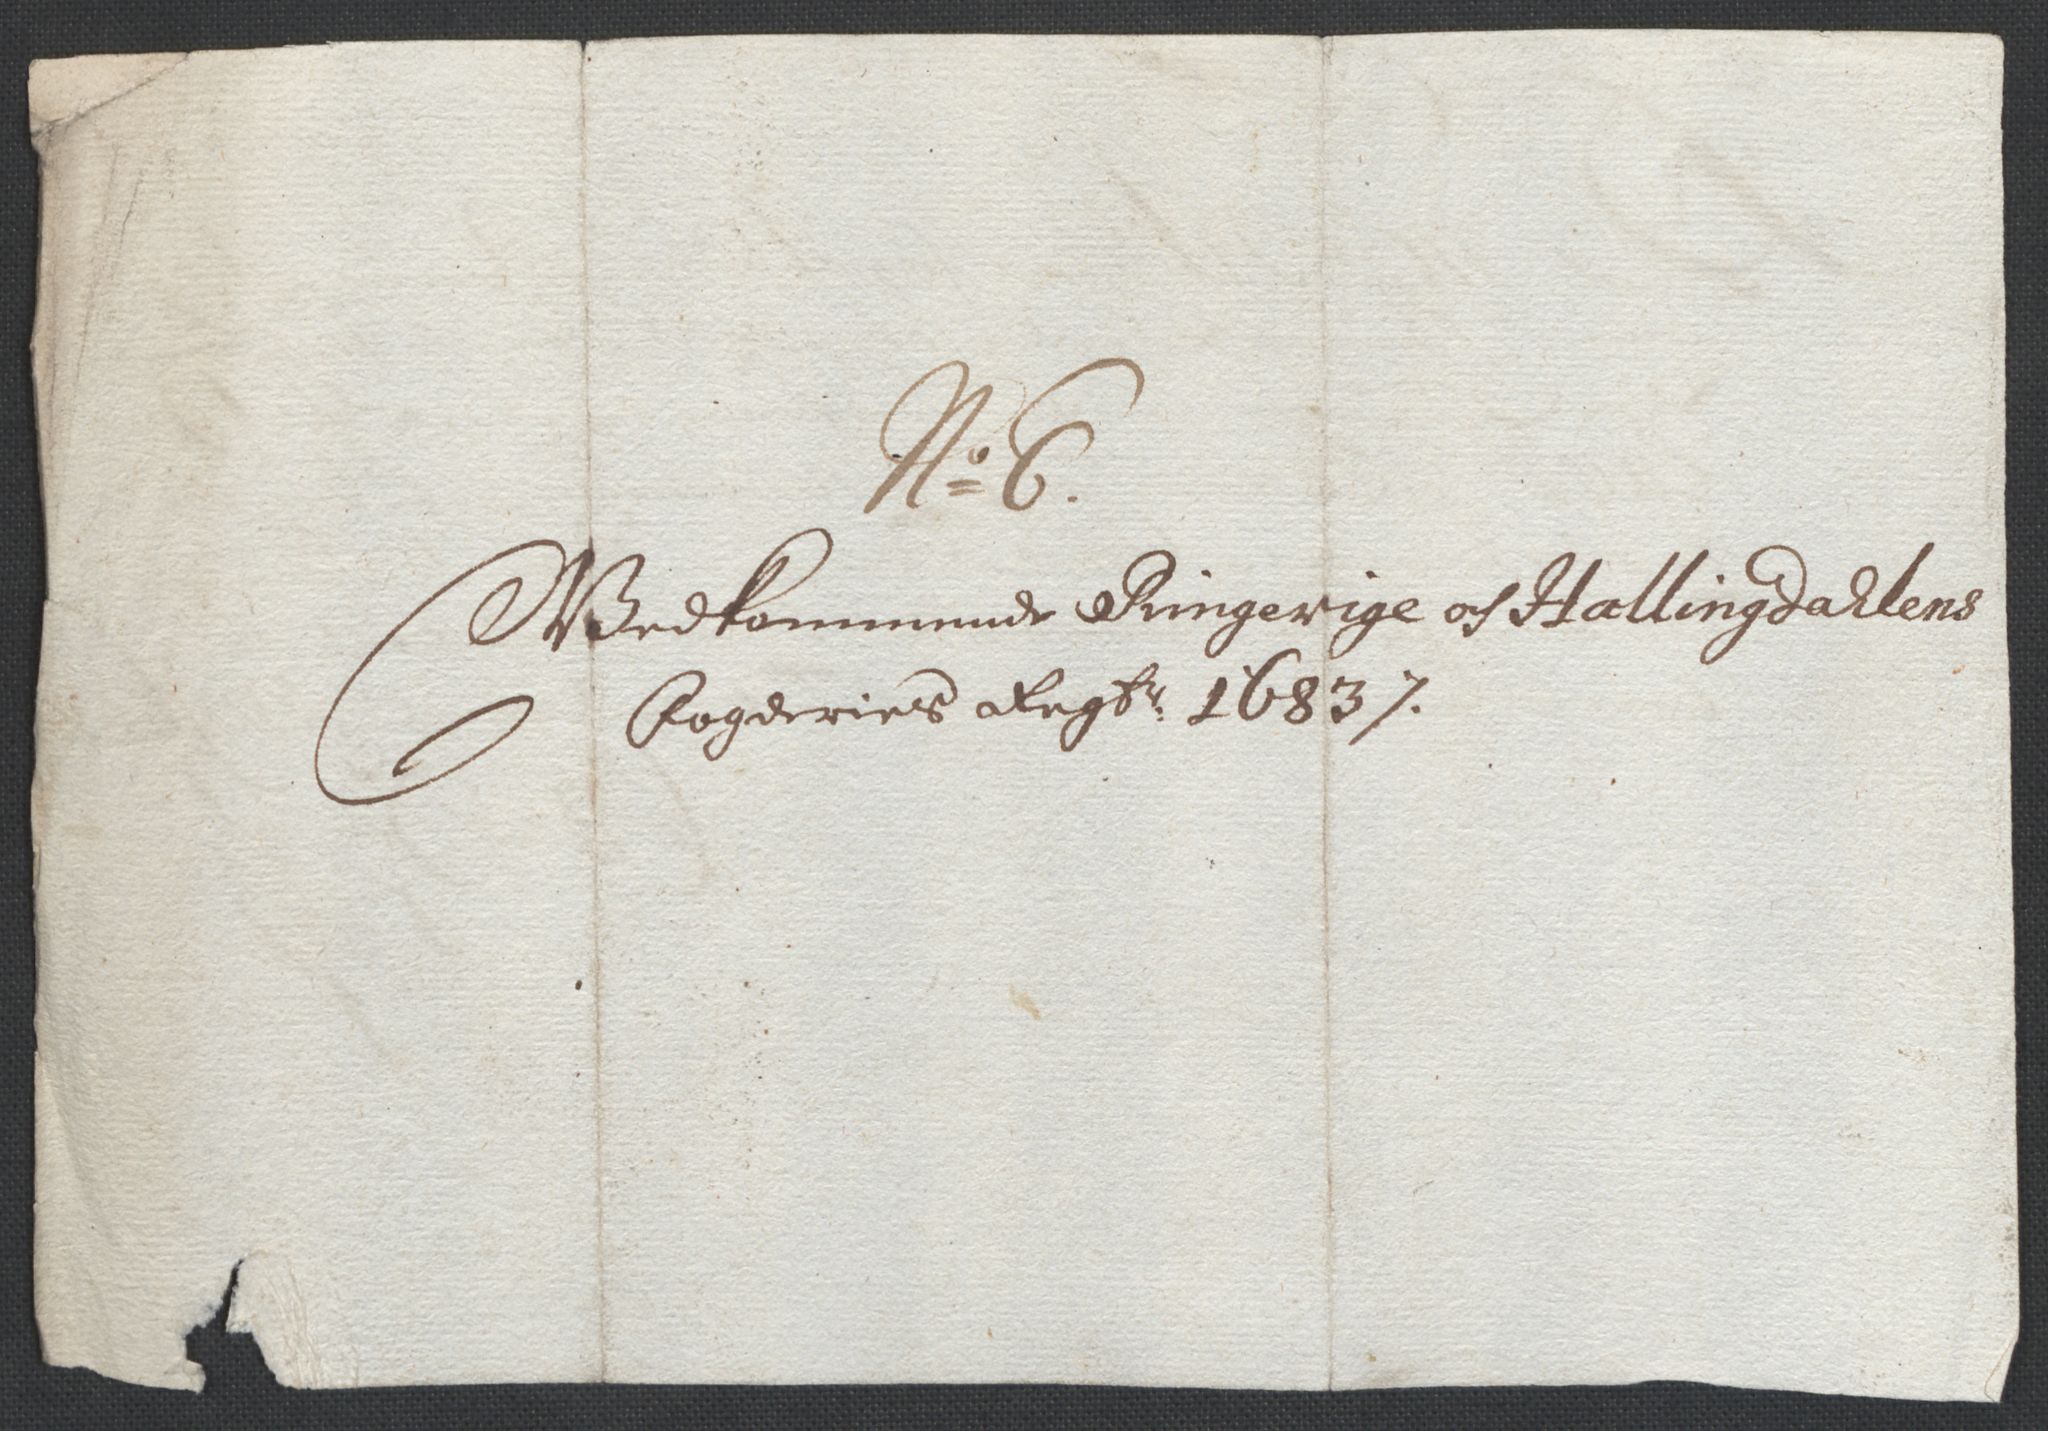 No 6.
Vedkommende Ringerige og Hallingdahlens
Fogderies Regbr. 1683 7.